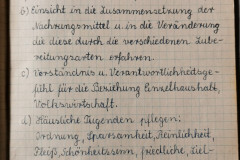 b) Einsicht in die Zusammensetzung der
Nahrungsmittel u. in die Veränderung
die diese durch die verschiedenen Zube-
reitungsarten erfahren.
c) Verständnis u. Verantwortlichkeitsge-
fühl für die Beziehung Einzelhaushalt,
Volkswirtschaft.
d) Häusliche Tugenden pflegen:
Ordnung, Sparsamkeit, Reinlichkeit,
Fleiß, Schönheitssinn, friedliche, Ziel-